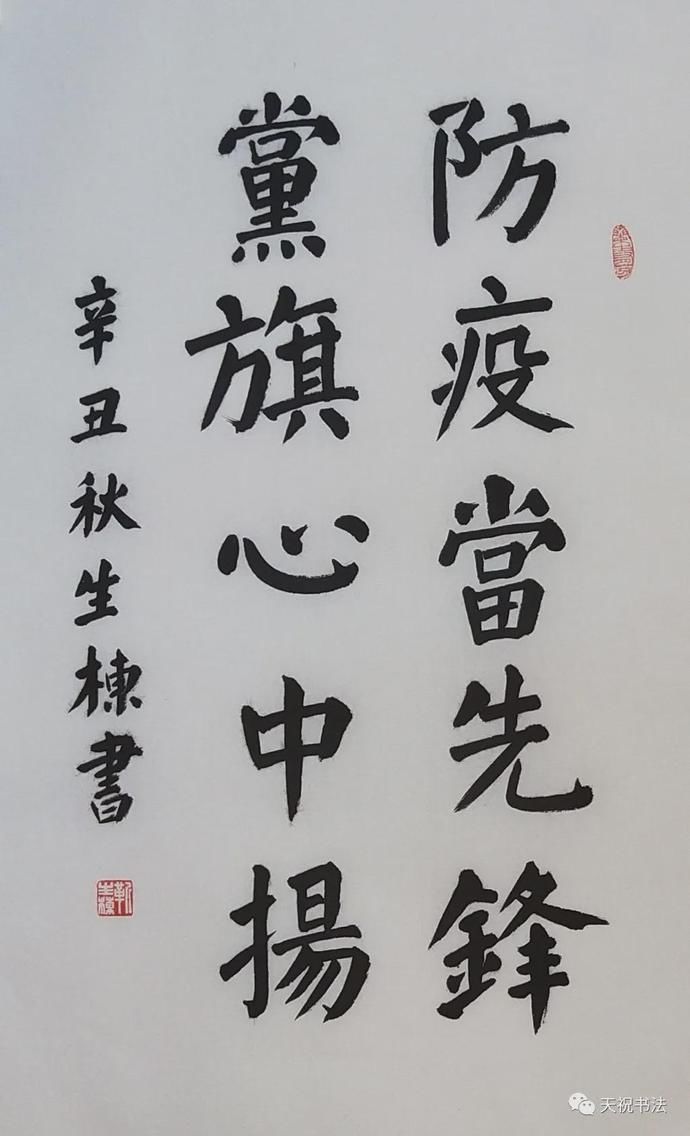 防疫當先鋒
黨旗心中揚
辛丑秋生棟書
靳生棟
天祝书法